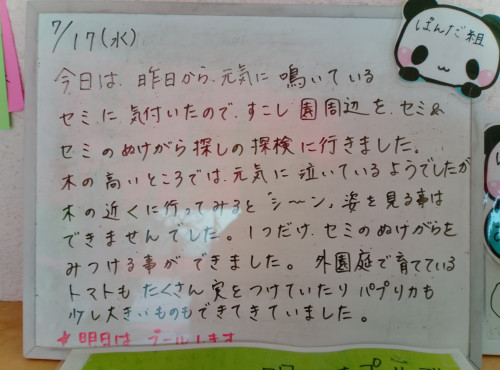 7/17(水)
ぱんだ組
今日は、昨日から、元気に鳴いている
セミに気付いたので、すこし園周辺を、セミ&
セミのぬけがら探しの探検に行きました。
木の高いところでは、元気に泣いているようでしたが
木の近くに行ってみると"シ〜ン"姿を見る事は
できませんでした。1つだけ、セミのぬけがらを
みつける事ができました。外園庭で育てている
トマトもたくさん実をつけていたりパプリカも
少し大きいものもできてきていました。
☆明日はプールします